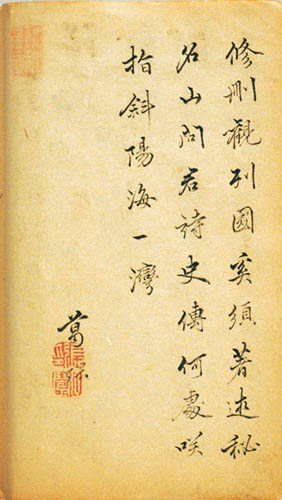 修刪觀列國奚須著述秘
名山問君詩史傳何處咲
指斜陽海一灣
葛